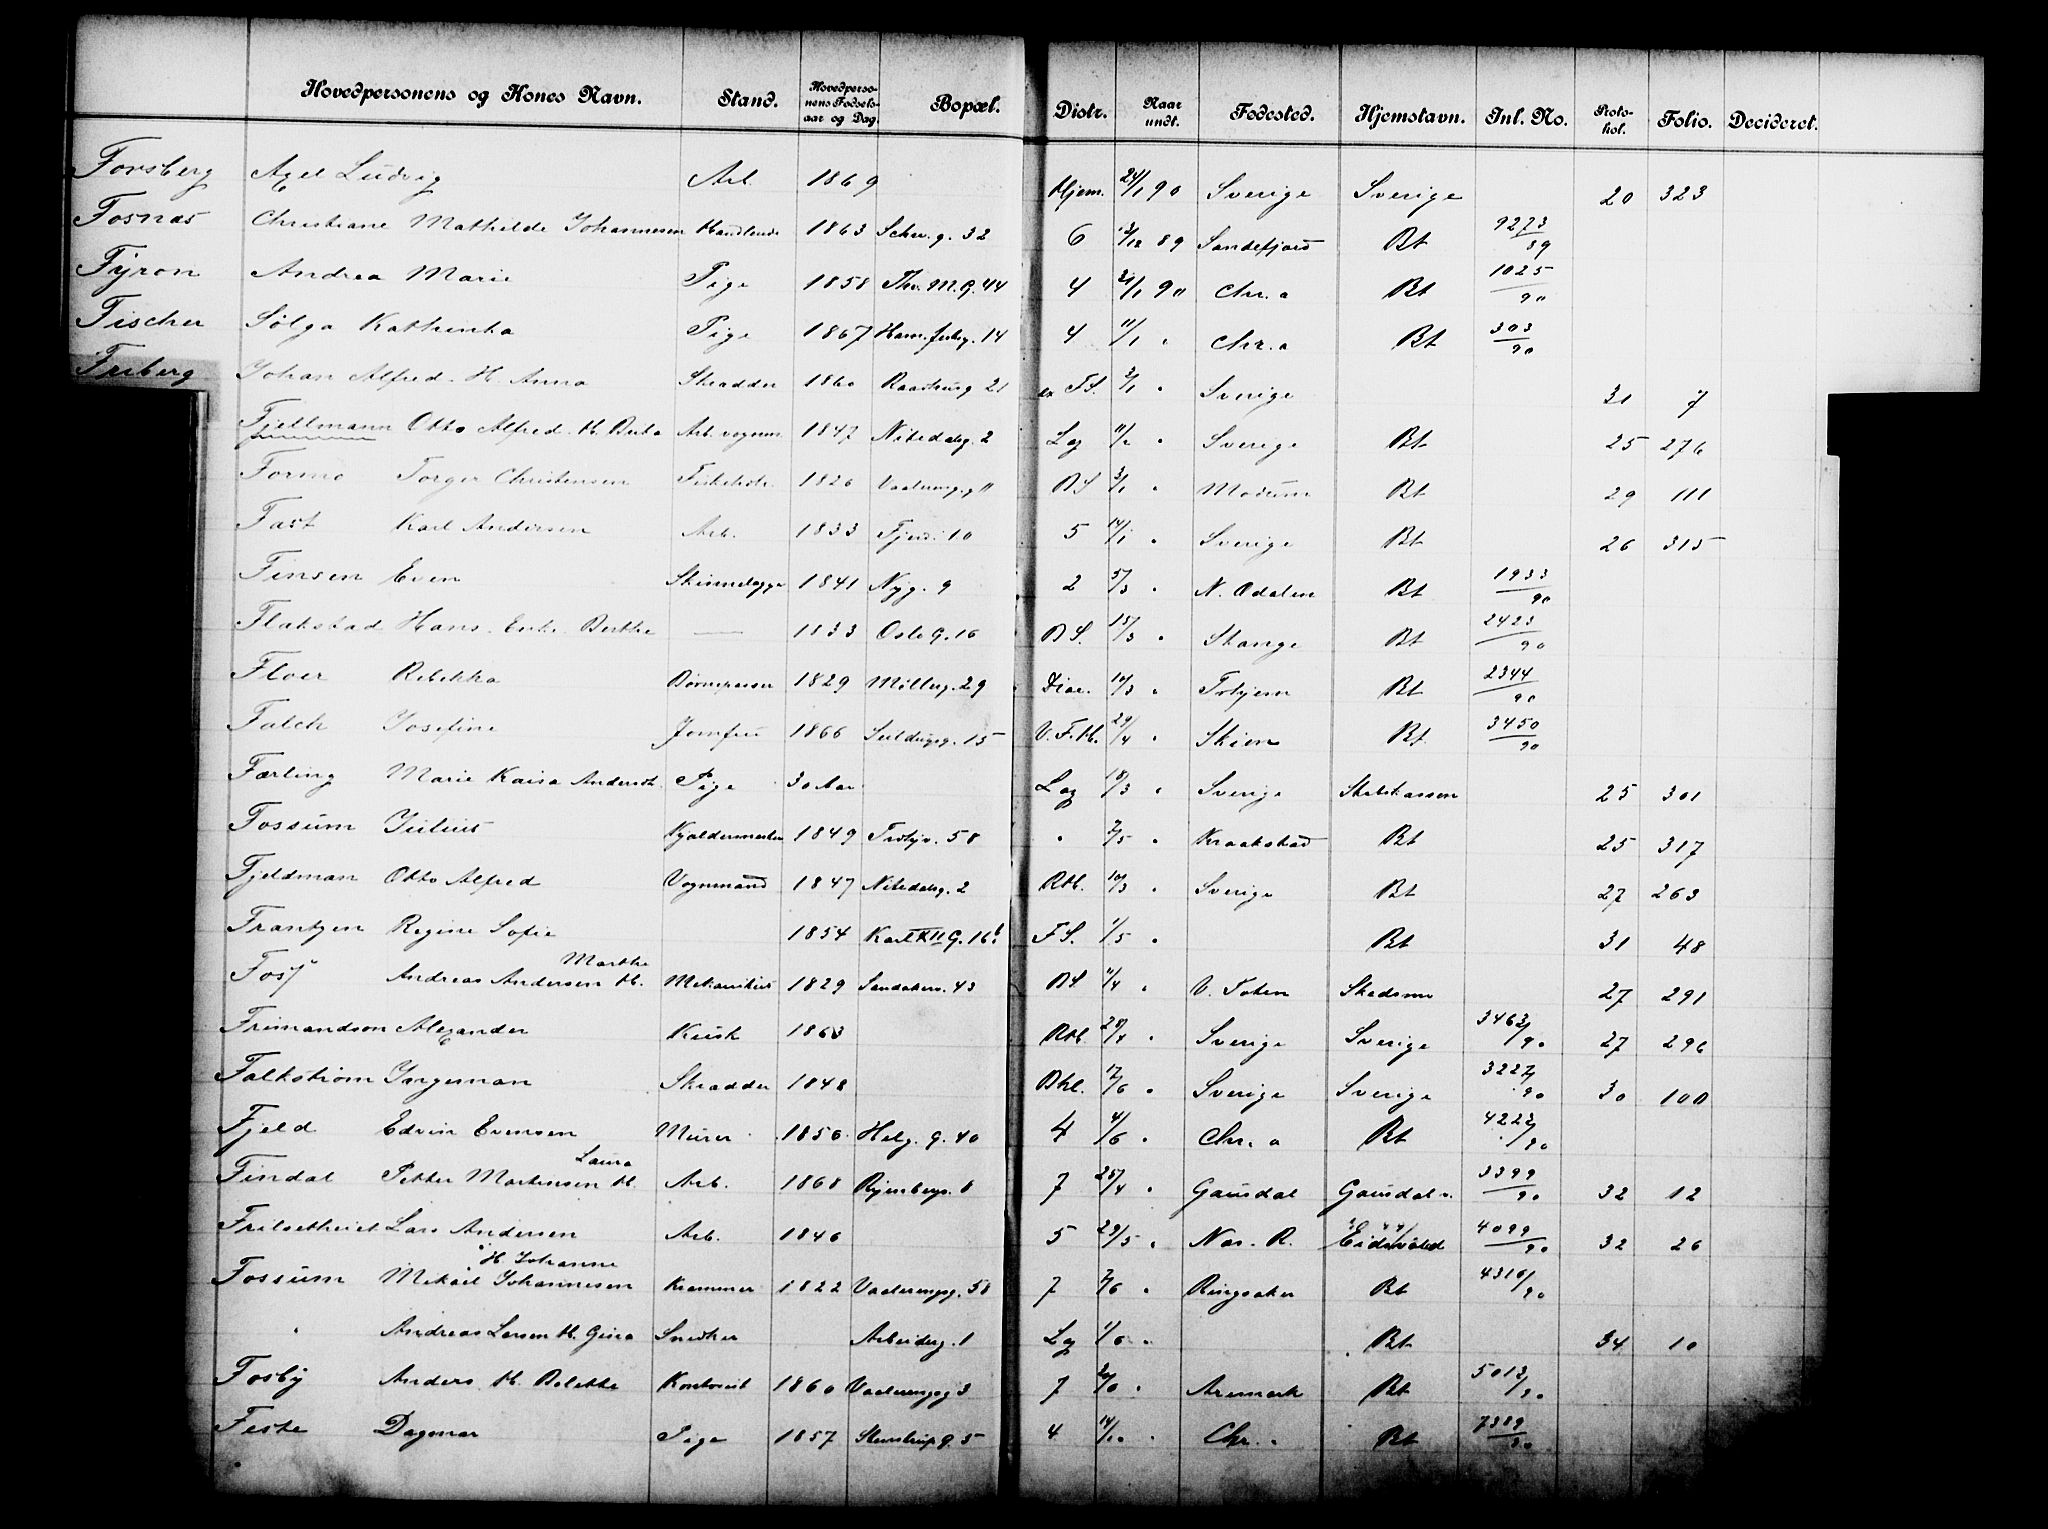 Hovedpersonens og Kones Navn. Stand. Hovedpersonens Fødselsaar og Dag. Bopæl. Distr. Naar undt. Fødested. Hjemstavn. Inl. No. Protokol. Folio. Decideret.
Forsberg Axel Ludvig Arb. 1869 Hjem. 24/1 90 Sverige Sverige 20 323
Fosnas Christiane Mathilde Johannesen Handlende 1863 Schw. g. 32 6 12/12 89 Sandefjord Bt 9273/89
Fyron Andrea Marie Pige 1858 Thv. M. G. 44 4 21/1 90 Chr. a Bt 1025/90
Fischer Sølga Kathinka Pige 1867 Hamferbg. 14 4 11/1 " Chr. a Bt 303/90
Friberg Johan Alfred. H. Anna Skrædder 1860 Raadhusg 21 FS. 2/1 " Sverige 31 7
Fjellmann Otto Alfred. H. Berta Arb. vognm. 1847 Nitedalsg. 2 Lag 11/2 " Sverige Bt 25 276
Formo Torger Christensen Fiskehdl. 1826 Vaalerengg 11 BS 3/1 " Modum Bt 29 111
Fast Karl Andersen Arb. 1833 Fjerd. 10 5 14/1 " Sverige Bt 26 315
Finsen Even Skindlægge 1841 Nyg. 9 2 5/3 " N. Odalen Bt 1933/90
Flakstad Hans. Enke. Berthe — 1833 Oslo G. 16 BS. 15/3 " Stange Bt 2423/90
Floer Rebekka 1829 Møllerg. 29 Diac. 10/3 " Trhjem Bt 2344/90
Falch Josefine Jomfru 1866 Seildugsg. 15 V. F. H. 29/4 " Skien Bt 3450/90
Færling Marie Kaisa Andersdt. Pige 30 Aar Lag 18/3 " Sverige Statskassen 25 301
Fossum Julius Kjældermester 1849 Trohjv. 58 " 2/5 " Kraakstad Bt 25 317
Fjeldman Otto Alfred Vognmand 1847 Nitedalsg. 2 RH. 10/3 " Sverige Bt 27 263
Frantzen Regine Sofie 1854 Karl XII G. 16 b. FS. 1/5 " Bt 31 48
Marthe
Foss Andreas Andersen H. Mekanikus 1829 Sandakerv. 43 BS 11/4 " V. Toten Skedsmo 27 291
Frimandson Alexander Kusk 1863 RH. 28/4 " Sverige Sverige 3462/90 27 296
Falkstrøm Ingeman Skrædder 1848 Bhl. 12/6 " Sverige Sverige 3227/90 30 100
Fjeld Edvin Evensen Murer 1856 Helg. G. 40 4 4/6 " Chr. a Bt 4222/90
Laura
Findal Petter Martinsen H. Arb. 1868 Ryenbergv. 8 7 25/4 " Gausdal Gausdal v. 3399/90 32 12
Lars Andersen Arb. 1846 5 29/5 " Nor. R. Eidsvold 4099/90 32 26
H Johanne
Fossum Mikael Johannesen Kræmmer 1822 Vaalerengg. 58 7 7/6 " Ringsaker Bt 4316/90
" Andreas Larsen H. Gina Snedker Arbeiderg. 1 Lag 1/6 " Bt 34 10
Fosby Anders H. Belette Kontorist 1860 Vaalerengg 3 7 " Aremark Bt 5013/90
Feste Dagmar Pige 1857 Stenstrup g. 5 4 14/10 " Chr. a Bt 7389/90